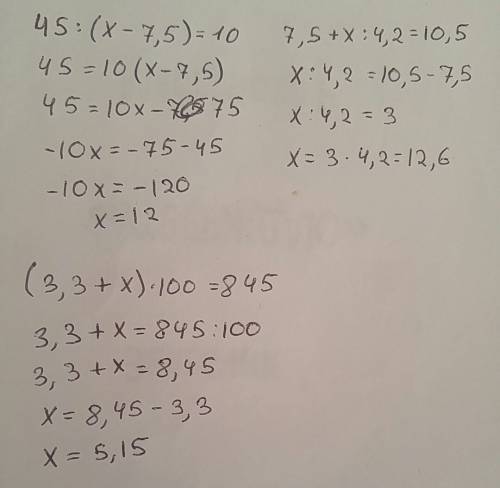 45:(x-7,5)=10
45=10(x-7,5)
45=10x-75
-10x=-75-45
-10x=-120
x=12
7,5+x:4,2=10,5
x:4,2=10,5-7,5
x:4,2=3
x=3·4,2=12,6
(3,3+x)·100=845
3,3+x=845:100
3,3+x=8,45
x=8,45-3,3
x=5,15